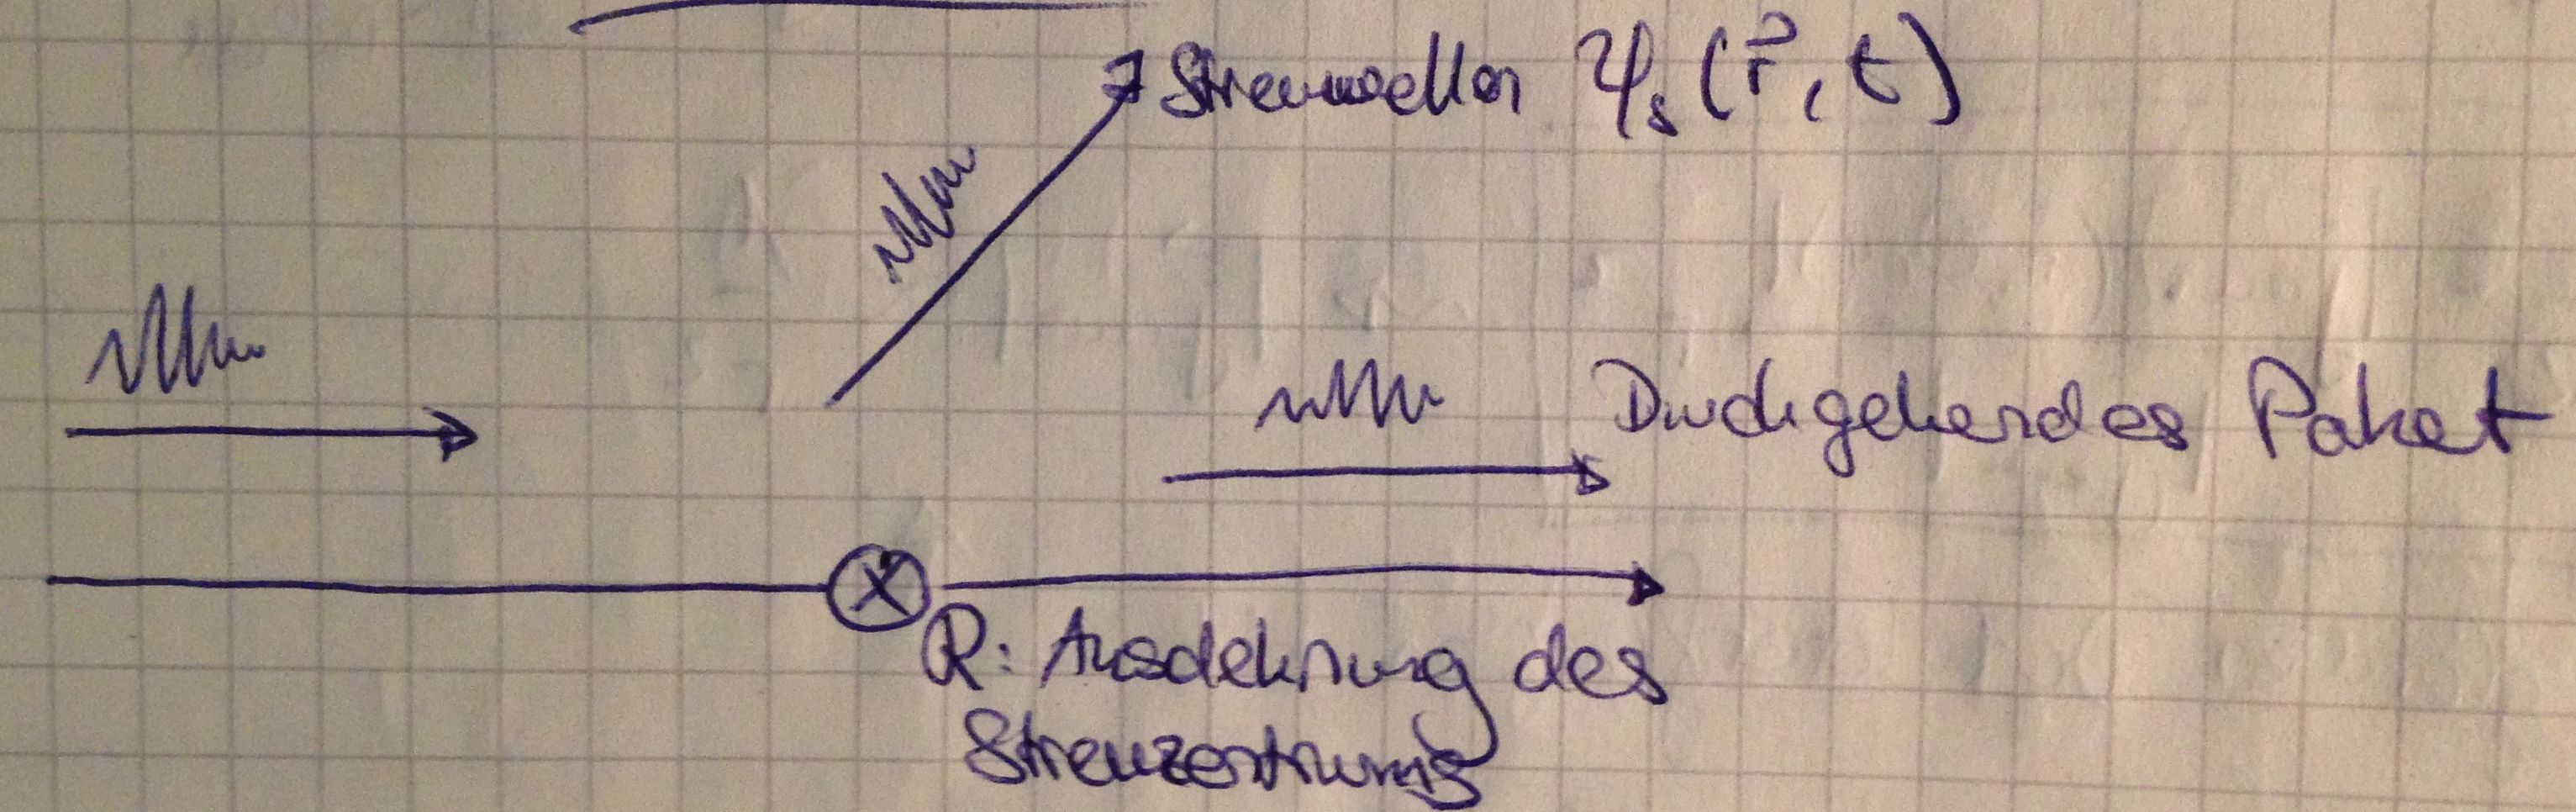 Streuwellen ψₛ(r⃗, t)
Durchgehendes Paket
R: Ausdehnung des
Streuzentrums